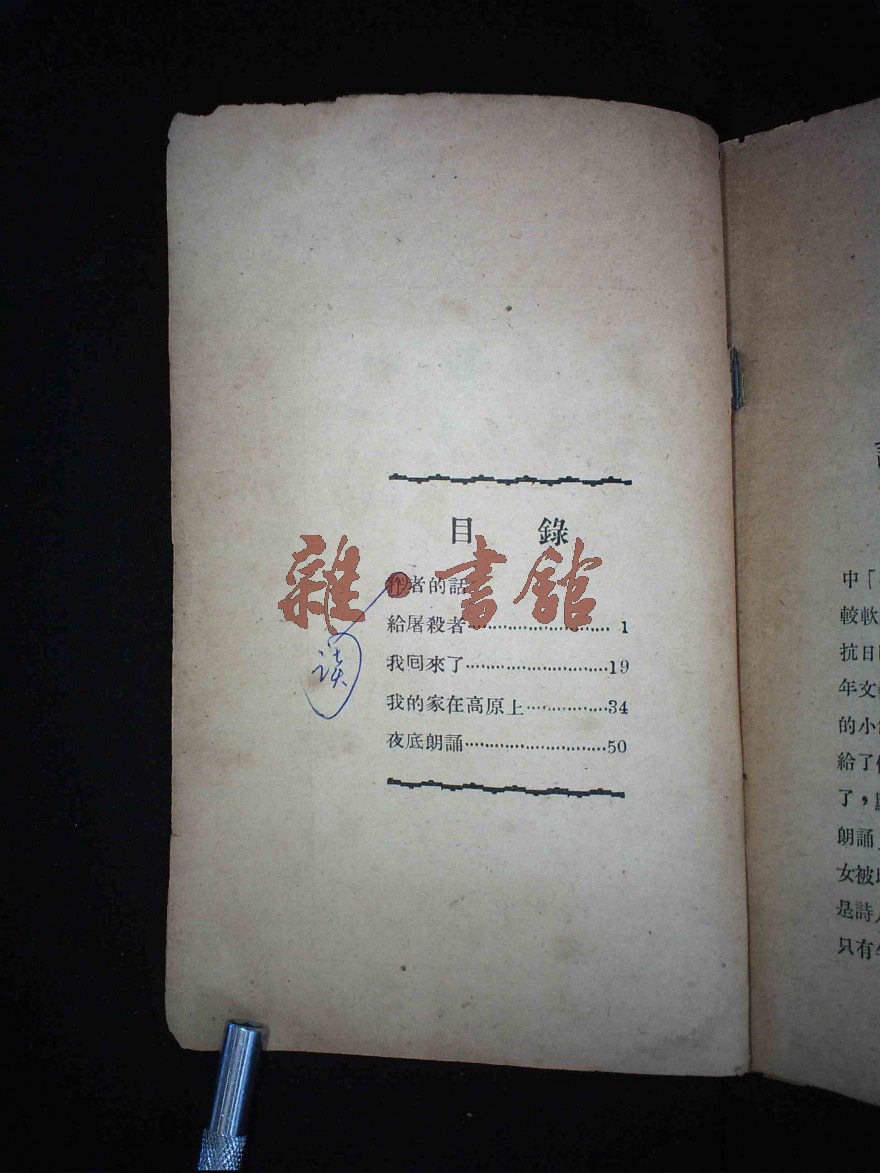 目錄
作者的話
給屠殺者 1
我囘來了 19
我的家在高原上 34
夜底朗誦 50
雜·書館
读
中「
較軟
抗日
年文
的小
給了
了，
朗誦
女被
是詩
只有